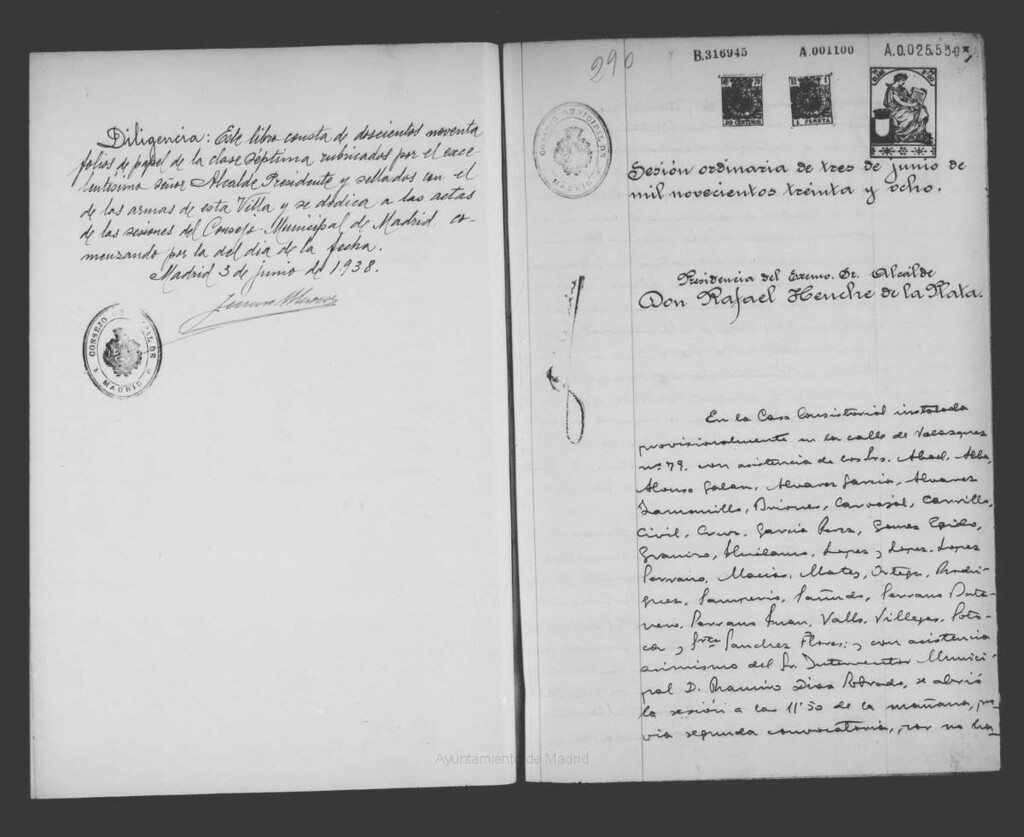 Diligencia: Este libro consta de doscientos noventa
folios de papel de la clase séptima rubricados por el exce-
lentísimo señor Alcalde Presidente y sellados con el
de las armas de esta Villa y se dedica a las actas
de las sesiones del Consejo Municipal de Madrid co-
menzando por la del dia de la fecha.
Madrid 3 de junio de 1.938.
CONSEJO MUNICIPAL DE
MADRID
290
B.316945 A.001100 A.0.025.550
CONSEJO MUNICIPAL DE
MADRID
1 PESETA
Sesión ordinaria de tres de junio de
mil novecientos treinta y ocho.
Presidencia del Excmo. Sr. Alcalde
Don Rafael Henche de la Plata.
En la Casa Consistorial instalada
provisionalmente en la calle de Velazquez
nº 79. con asistencia de los Srs. Abad, Alba,
Alonso Galan, Alvarez Garcia, Alvarez
Jaramillo, Briones, Carvajal, Carrillo,
Civil, Cruz, Garcia Perez, Gomez Egido,
Granizo, Lopez y Lopez, Lopez
Serrano, Macias, Mates, Ortega, Rodri-
guez, Sañudo, Serrano
Serrano Valls, Villegas,
y Sanchez Flores; y con asistencia
asimismo del Sr. Interventor Munici-
pal D. Ramiro Dias, se abrió
la sesión a las 11'50 de la mañana, pre-
via segunda convocatoria, por no ha-
Ayuntamiento de Madrid